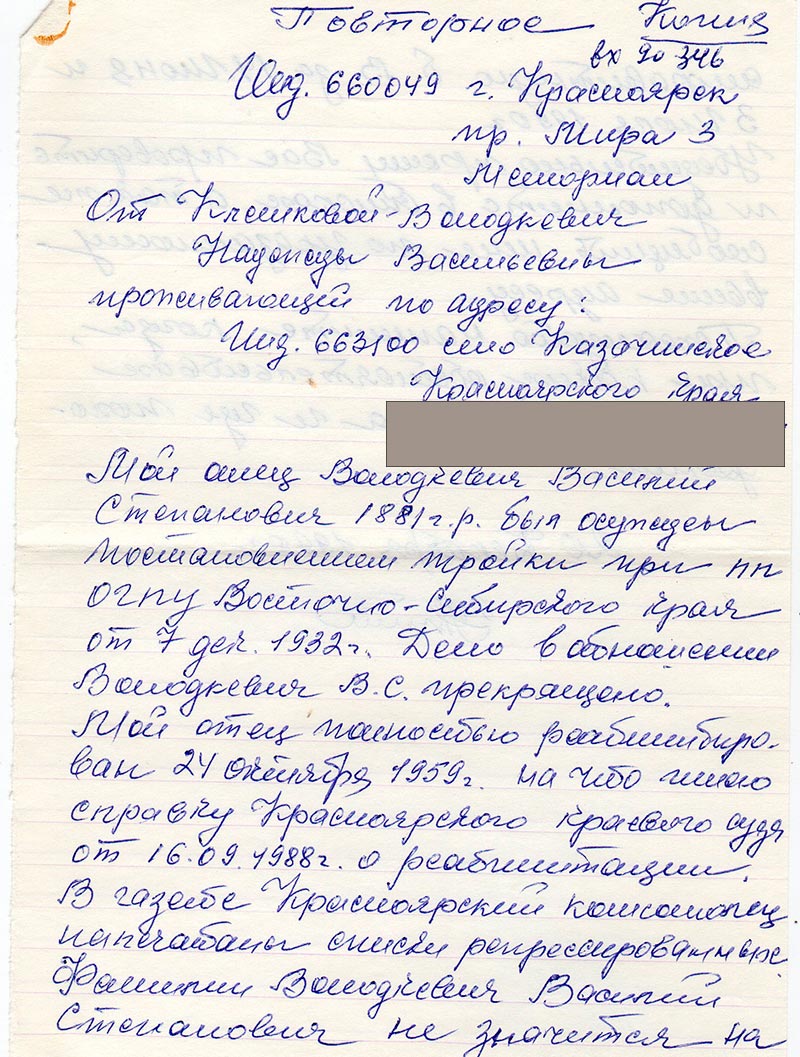 Повторное Копия
вх 90 346
Инд. 660049 г. Красноярск
пр. Мира 3
Мемориал
От Клепиковой-Володкевич
Надежды Васильевны
проживающей по адресу:
Инд. 663100 село Казачинское
Красноярского края
Мой отец Володкевич Василий
Степанович 1881 г.р. был осужден
постановлением тройки при пп
ОГПУ Восточно-Сибирского края
от 7 дек. 1932 г. Дело в отношении
Володкевич В.С. прекращено.
Мой отец полностью реабилитиро-
ван 24 октября 1959 г. на что имею
справку Красноярского краевого суда
от 16.09.1988 г. о реабилитации.
В газете Красноярский комсомолец
напечатаны списки репрессированных
Фамилии Володкевич Василий
Степанович не значится на